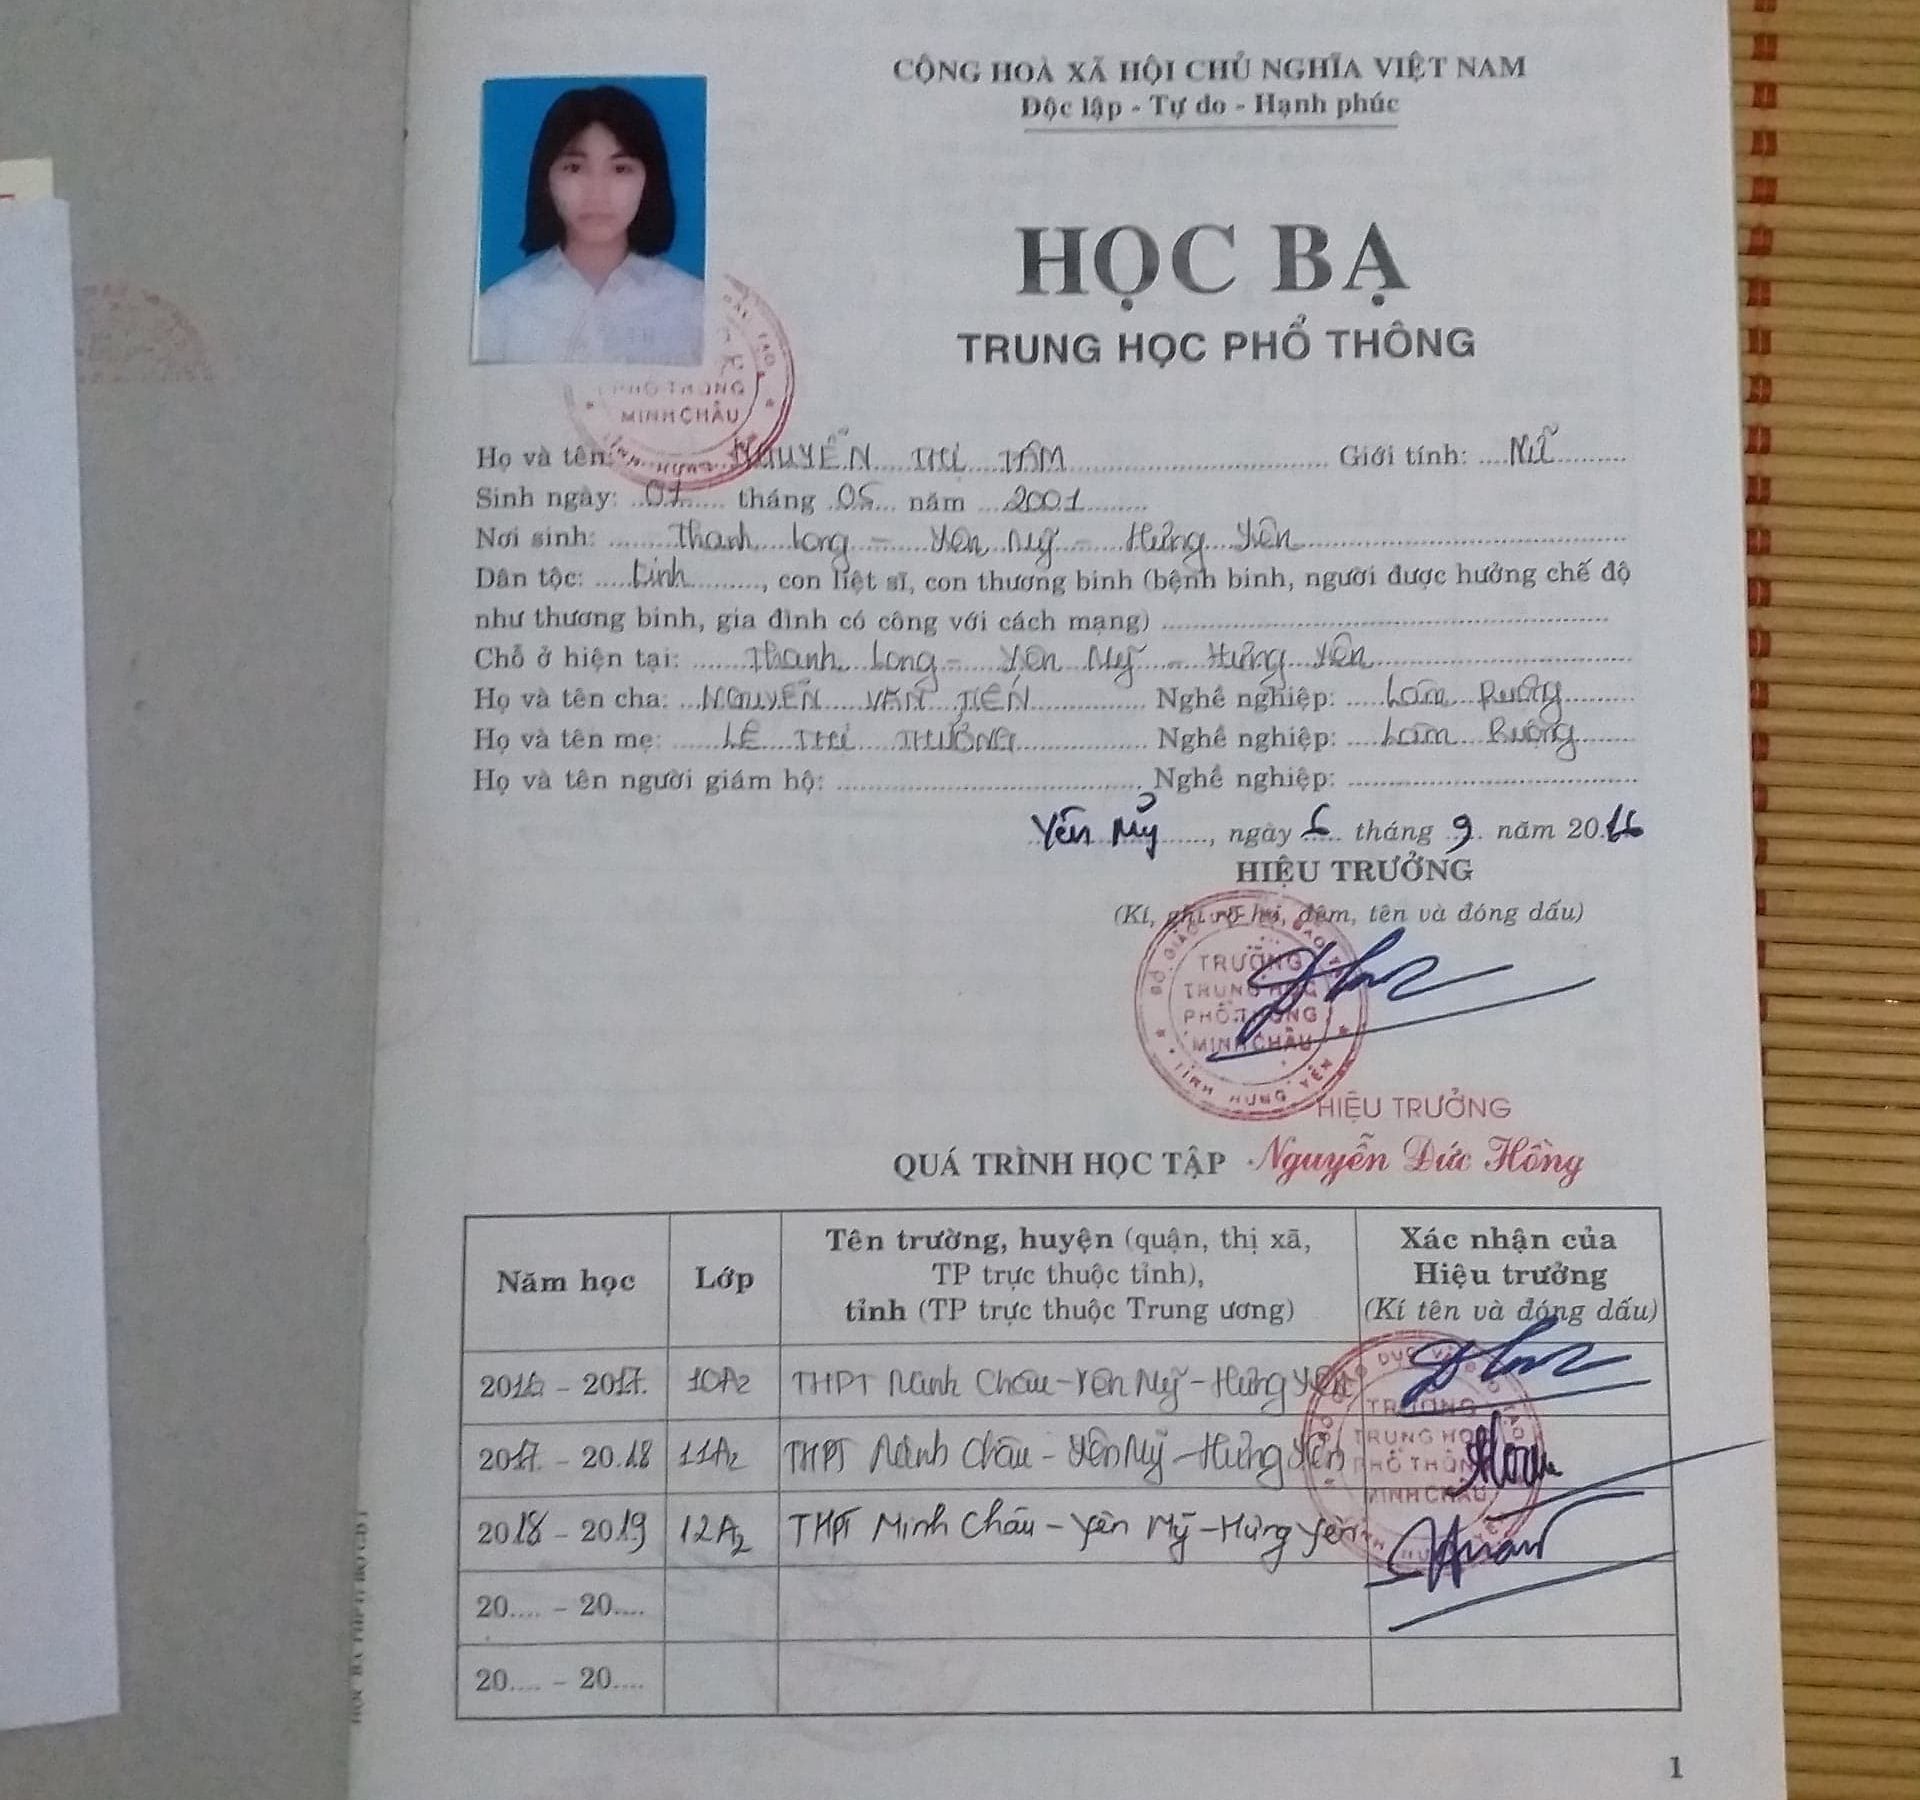 CỘNG HOÀ XÃ HỘI CHỦ NGHĨA VIỆT NAM
Độc lập - Tự do - Hạnh phúc
HỌC BẠ
TRUNG HỌC PHỔ THÔNG
PHỔ THÔNG
MINH CHÂU
Họ và tên: NGUYỄN THỊ TÂM Giới tính: Nữ
Sinh ngày: 07 tháng 05 năm 2001
Nơi sinh: Thanh Long - Yên Mỹ - Hưng Yên
Dân tộc: kinh, con liệt sĩ, con thương binh (bệnh binh, người được hưởng chế độ
như thương binh, gia đình có công với cách mạng)
Chỗ ở hiện tại: Thanh Long - Yên Mỹ - Hưng Yên
Họ và tên cha: NGUYỄN VĂN TIẾN Nghề nghiệp: Làm Ruộng
Họ và tên mẹ: LÊ THỊ THƯỞNG Nghề nghiệp: Làm Ruộng
Họ và tên người giám hộ: Nghề nghiệp:
Yên Mỹ, ngày 6 tháng 9 năm 2016
HIỆU TRƯỞNG
(Kí, ghi rõ họ, đệm, tên và đóng dấu)
TRƯỜNG
TRUNG HỌC
PHỔ THÔNG
MINH CHÂU
HIỆU TRƯỞNG
QUÁ TRÌNH HỌC TẬP Nguyễn Đức Hồng
Năm học Lớp Tên trường, huyện (quận, thị xã, TP trực thuộc tỉnh), tỉnh (TP trực thuộc Trung ương) Xác nhận của Hiệu trưởng (Kí tên và đóng dấu)
2016 - 2017 10A2 THPT Minh Châu - Yên Mỹ - Hưng Yên
2017 - 2018 11A2 THPT Minh Châu - Yên Mỹ - Hưng Yên
2018 - 2019 12A2 THPT Minh Châu - Yên Mỹ - Hưng Yên
20.... - 20....
20.... - 20....
TRƯỜNG
TRUNG HỌC
PHỔ THÔNG
MINH CHÂU
1